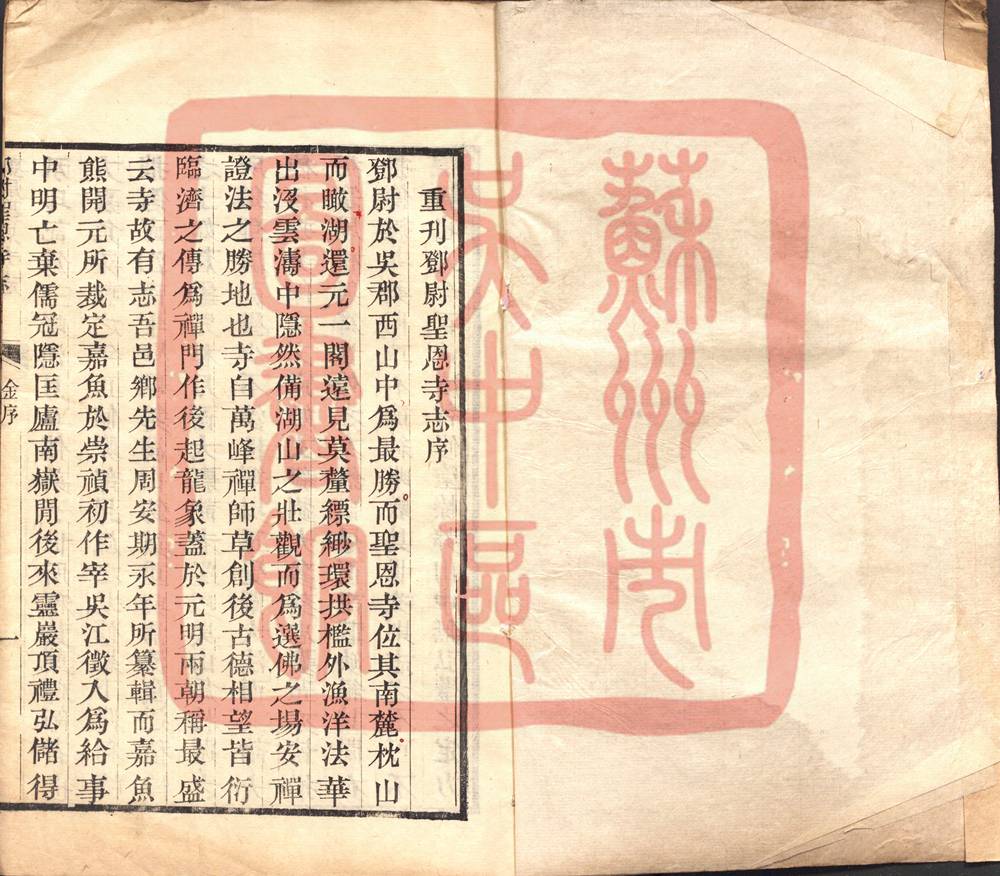 重刊鄧尉聖恩寺志序
鄧尉於吳郡西山中爲最勝而聖恩寺位其南麓枕山
而瞰湖還元一閣遠見莫釐縹緲環拱檻外漁洋法華
出沒雲濤中隱然備湖山之壯觀而爲選佛之場安禪
證法之勝地也寺自萬峰禪師草創後古德相望皆衍
臨濟之傳爲禪門作後起龍象蓋於元明兩朝稱最盛
云寺故有志吾邑鄉先生周安期永年所纂輯而嘉魚
熊開元所裁定嘉魚於崇禎初作宰吳江徵入爲給事
中明亡棄儒冠隱匡廬南嶽閒後來靈巖頂禮弘儲得
金序
一
蘇州市
吳中區
圖書館